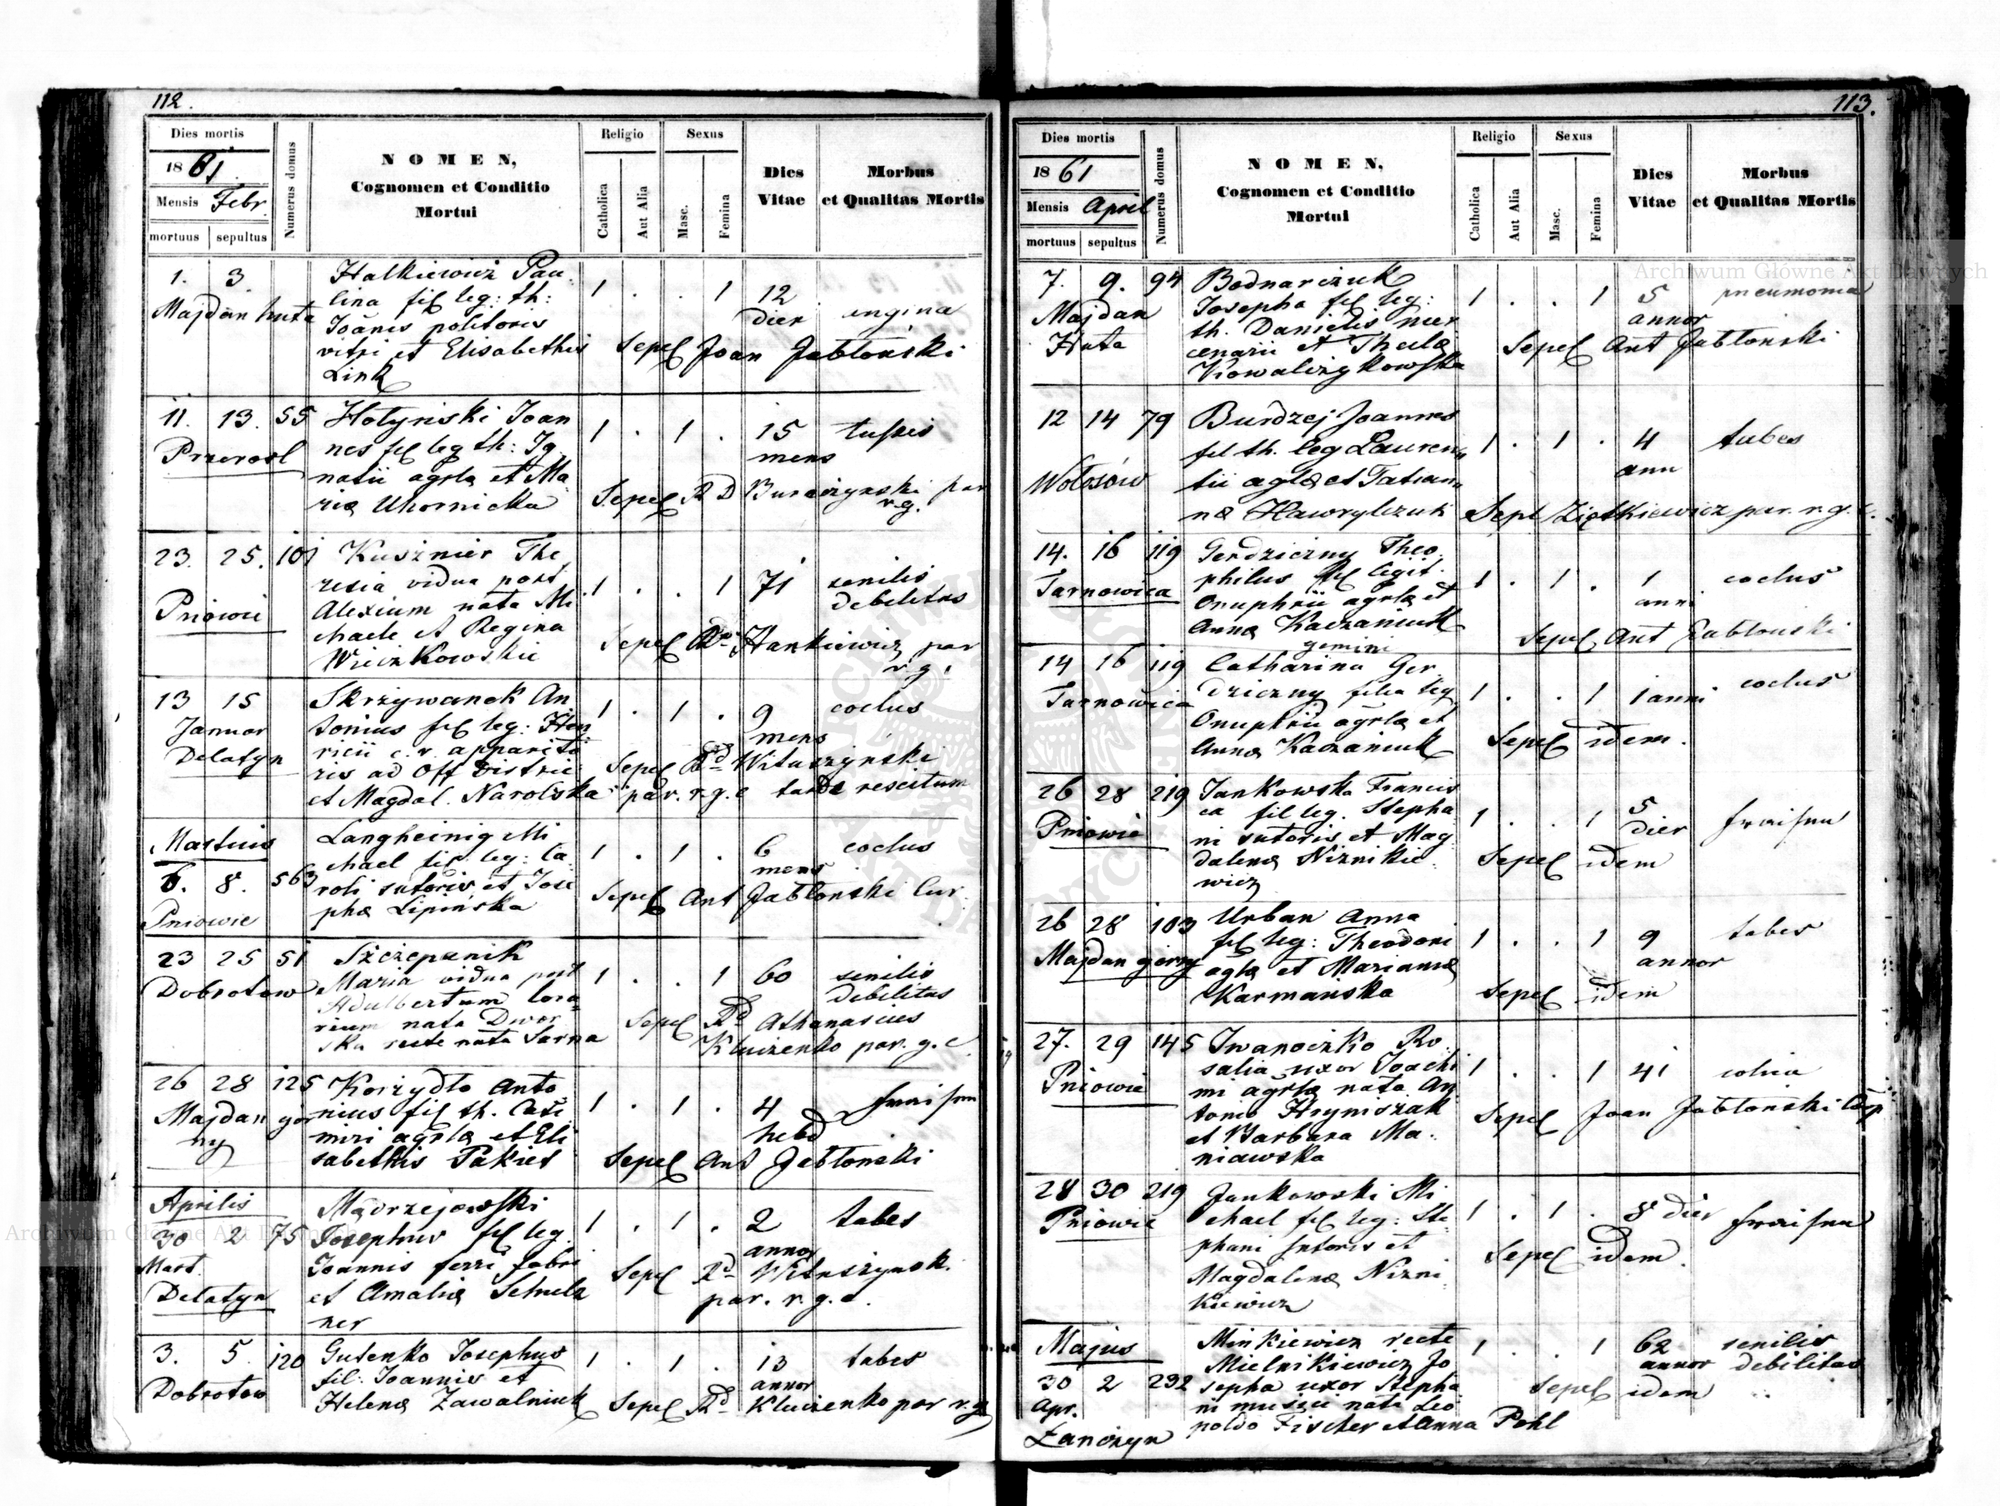 112.
Dies mortis
1861.
Mensis Febr.
mortuus sepultus
Numerus domus
NOMEN,
Cognomen et Conditio
Mortui
Religio
Catholica
Aut Alia
Sexus
Masc.
Femina
Dies
Vitae
Morbus
et Qualitas Mortis
1. 3
Majdan huta
Halkiewicz Pau
lina fil leg: th:
Joãnis politoris
vitri et Elisabethis
Link
1 . . 1 12
dier angina
Sepel Joan Jabłoński
11. 13. 55
Przerosl
Hołyński Joan
nes fil leg th: Ig
natii agrlæ et Ma
riæ Uhornicka
1 . 1 . 15
mens tussis
Sepel RD Buraczyński par
r.g.
23. 25. 101
Pniowie
Kusznier The
resia vidua post
Alexium nata Mi
chaele et Regina
Wieczkowskie
1 . . 1 71 senilis
debilitas
Sepel Rd Hankiewicz par
r.g.
13 15
Januar
Delatyn
Skrzywanek An
tonius fil leg: Hen
ricii c.r. apparito
ris ad Off Distric:
et Magdal. Narolska
1 . 1 . 9
mens coctus
Sepel Rd Witaszyński
par. r.g.c tarde rescitum
Martius
6. 8. 563
Pniowie
Langheinig Mi
chael fil. leg: Ca
roli sutoris et Jose
phæ Lipińska
1 . 1 . 6
mens coctus
Sepel Ant Jabłonski Cur.
23 25 51
Dobrotow
Szczepanik
Maria vidua post
Adalbertum lora
rium nata Dwor
ska recte nata Sarna
1 . . 1 60 senilis
debilitas
Sepel Rd Athanasius
Kluczenko par. g. c.
26 28 125
Majdan gor
ny
Korzydło Anto
nius fil th. Casi
miri agrlæ et Eli
sabethis Pakiet
1 . 1 . 4
hebd fraisen
Sepel Ant Jabłoński
Aprilis
30 2 75
Mart.
Delatyn
Mądrzejowski
Josephus fil leg
Joannis ferri fabri
et Amaliæ Schulz
ner
1 . 1 . 2
annor tabes
Sepel Rd Witaszynsk.
par. r. g. c.
3. 5. 120
Dobrotow
Gutenko Josephus
fil: Joannis et
Helenæ Zawalniuk
1 . 1 . 13
annor tabes
Sepel Rd Kluczenko par r.g
113.
Dies mortis
1861
Mensis April
mortuus sepultus
Numerus domus
NOMEN,
Cognomen et Conditio
Mortui
Religio
Catholica
Aut Alia
Sexus
Masc.
Femina
Dies
Vitae
Morbus
et Qualitas Mortis
7. 9. 94
Majdan
Huta
Bodnarczuk
Josepha fil leg:
th. Danielis mer
cenarii et Theclæ
Kowalczykowska
1 . . 1 5
annor pneumonia
Sepel Ant Jabłoński
12 14 79
Wołosów
Burdzej Joannes
fil th. leg Lauren
tii agrlæ et Tatian
næ Hawrylczuk
1 . 1 . 4
ann tabes
Sepel Ziętkiewicz par. r. g. c.
14. 16 119
Tarnowica
Gerdziczny Theo
philus fil legit.
Onuphrii agrlæ et
Annæ Kaczaniuk
1 . 1 . 1
anni coctus
Sepel Ant Jabłonski
gemini
14 16 119
Tarnowica
Catharina Ger
dziczny filia leg
Onuphrii agrlæ et
Annæ Kaczaniuk
1 . . 1 1 anni coctus
Sepel idem.
26 28 219
Pniowie
Jankowska Francis
ca fil leg. Stepha
ni sutoris et Mag
dalenæ Niznikie
wicz
1 . . 1 5
dier fraisen
Sepel idem
26 28 103
Majdan górny
Urban Anna
fil leg: Theodori
agrlæ et Mariannæ
Karmańska
1 . . 1 9
annor tabes
Sepel idem
27. 29 145
Pniowie
Iwanoczko Ro
salia uxor Joachi
mi agrlæ nata An
tonio Hryniszak
et Barbara Ma
niawska
1 . . 1 41 colica
Sepel Joan Jabłoński Coop
28 30 219
Pniowie
Jankowski Mi
chael fil leg: Ste
phani sutoris et
Magdalenæ Nizni
kiewicz
1 . 1 . 8 dier fraisen
Sepel idem.
Majus
30 2 292
Apr.
Łanczyn
Minkiewicz recte
Mielnikiewicz Jo
sepha uxor Stepha
ni musici nata Leo
poldo Fischer et Anna Pohl
1 . . 1 62
annor senilis
debilitas
Sepel idem
Archiwum Główne Akt Dawnych
Archiwum Główne Akt Dawnych